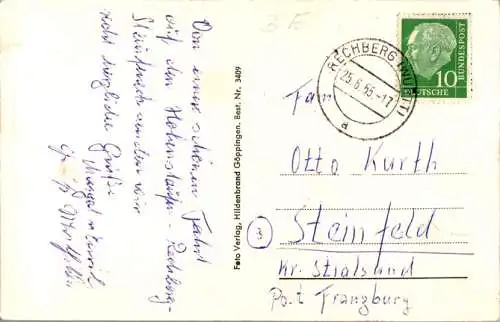 3 E
Von einer schönen Fahrt
auf den Hohenstaufen - Rechberg -
Stuifen senden wir
recht herzliche Grüße
Foto Verlag, Hildenbrand Göppingen. Best. Nr. 3409
RECHBERG (WÜRTT)
25.6.56.-17
a
DEUTSCHE
BUNDESPOST
10
Fam
Otto Kurth
Steinfeld
Kr. Stralsund
Post Franzburg